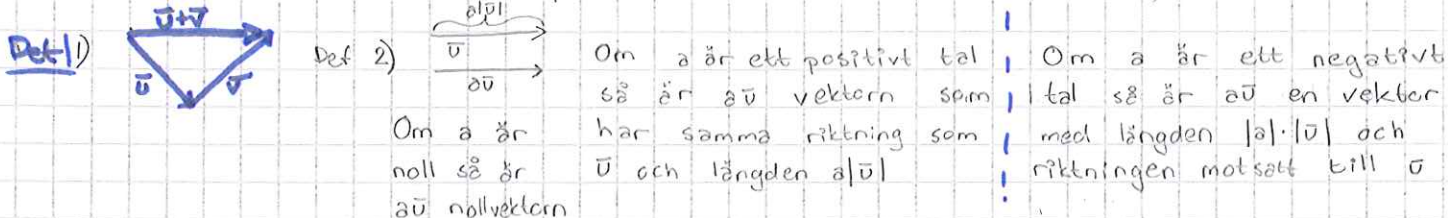 Def 1)
ū+v̄
ū
v̄
Def 2)
a|ū|
ū
aū
Om a är
noll så är
aū nollvektorn
Om a är ett positivt tal
så är aū vektorn som
har samma riktning som
ū och längden a|ū|
Om a är ett negativt
tal så är aū en vektor
med längden |a|·|ū| och
riktningen motsatt till ū